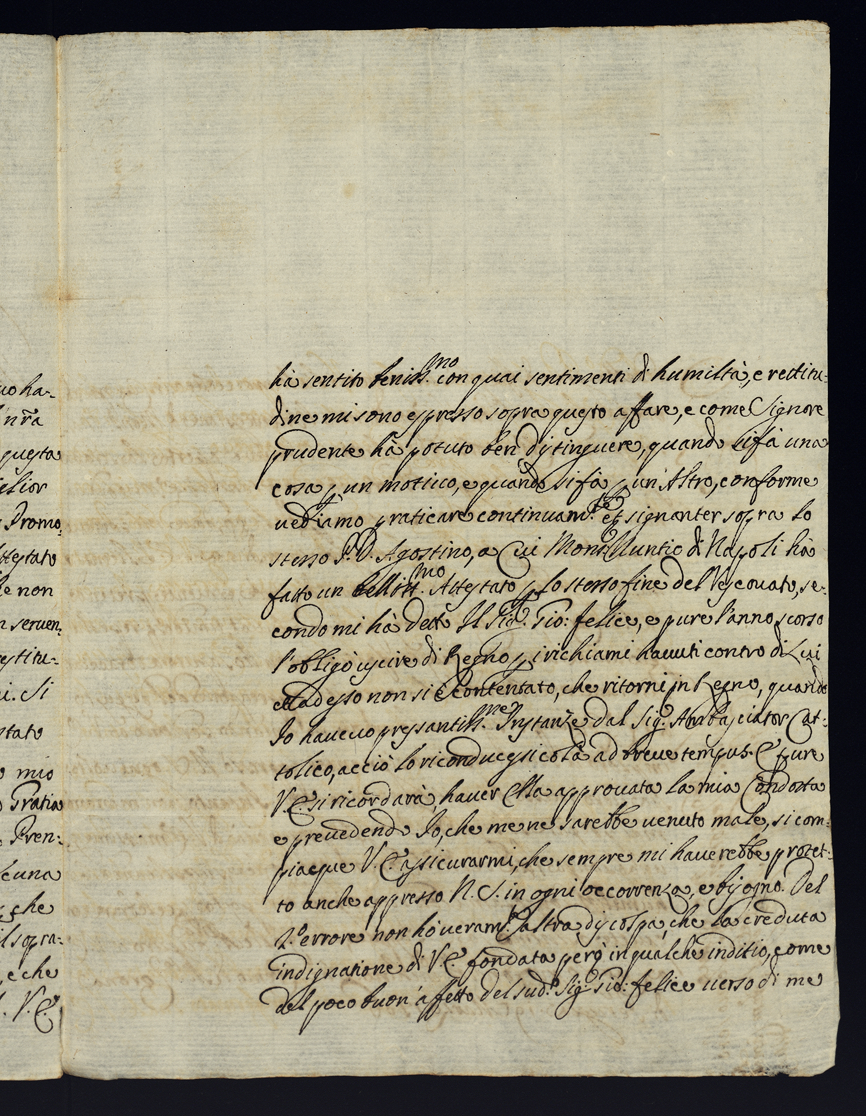 uo ha-
n̄ra
questa
elior
Promo,
Attestato
le non
n seruen,
estitu-
i. Si
stato
o mio
Gratia
Pren:
una
che
il sopra:
, e che
V. E.
hà sentito beniss.mo con quai sentimenti di humiltà, e rettitu:
dine mi sono espresso sopra questo affare, e come Signore
prudente hà potuto ben distinguere, quando si fà una
cosa p un motiuo, e quando si fà p un'Altro, conforme
uediamo praticare continuam.te et signanter sopra lo
stesso P. D. Agostino, a Cui Mons.r Nuntio di Napoli hà
fatto un belliss.mo Attestato p lo stesso fine del Vescouato, se-
condo mi hà detto Il Sig.r Gio: felice, e pure l'anno scorso
l'obligò uscire di Regno p i richiami hauuti contro di Lui
e adesso non si è contentato, che ritorni in Regno, quando
Io haueuo pressantiss.me Instanze dal Sig.r Ambasciator Cat-
tolico, acciò lo riconducessi colà ad breue tempus. E pure
V. E. si ricordarà, hauer Ella approuata la mia Condotta
e preuedendo Io, che me ne sarebbe uenuto male, si com-
piacque V. E. assicurarmi, che sempre mi hauerebbe protet-
to anche appresso N. S. in ogni occorrenza, e bisogno. Del
2.o errore non hò ueram.te altra discolpa, che la creduta
indignatione di V. E. fondata però in qualche inditio, come
del poco buon'affetto del sud.o Sig.r Gio: felice uerso di me